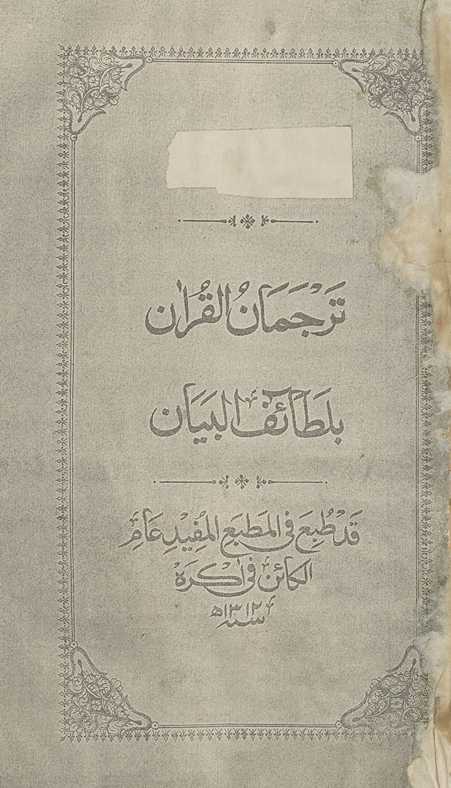 تَرْجَمَانُ القُرْاٰن
بلَطَائِفِ البَيَان
قَدْ طُبِعَ فِی المَطبَعِ المُفِیْدِ عَامْ
الکَائِن فِی اٰکرَه
سنہ ۱۳۱۲ھ